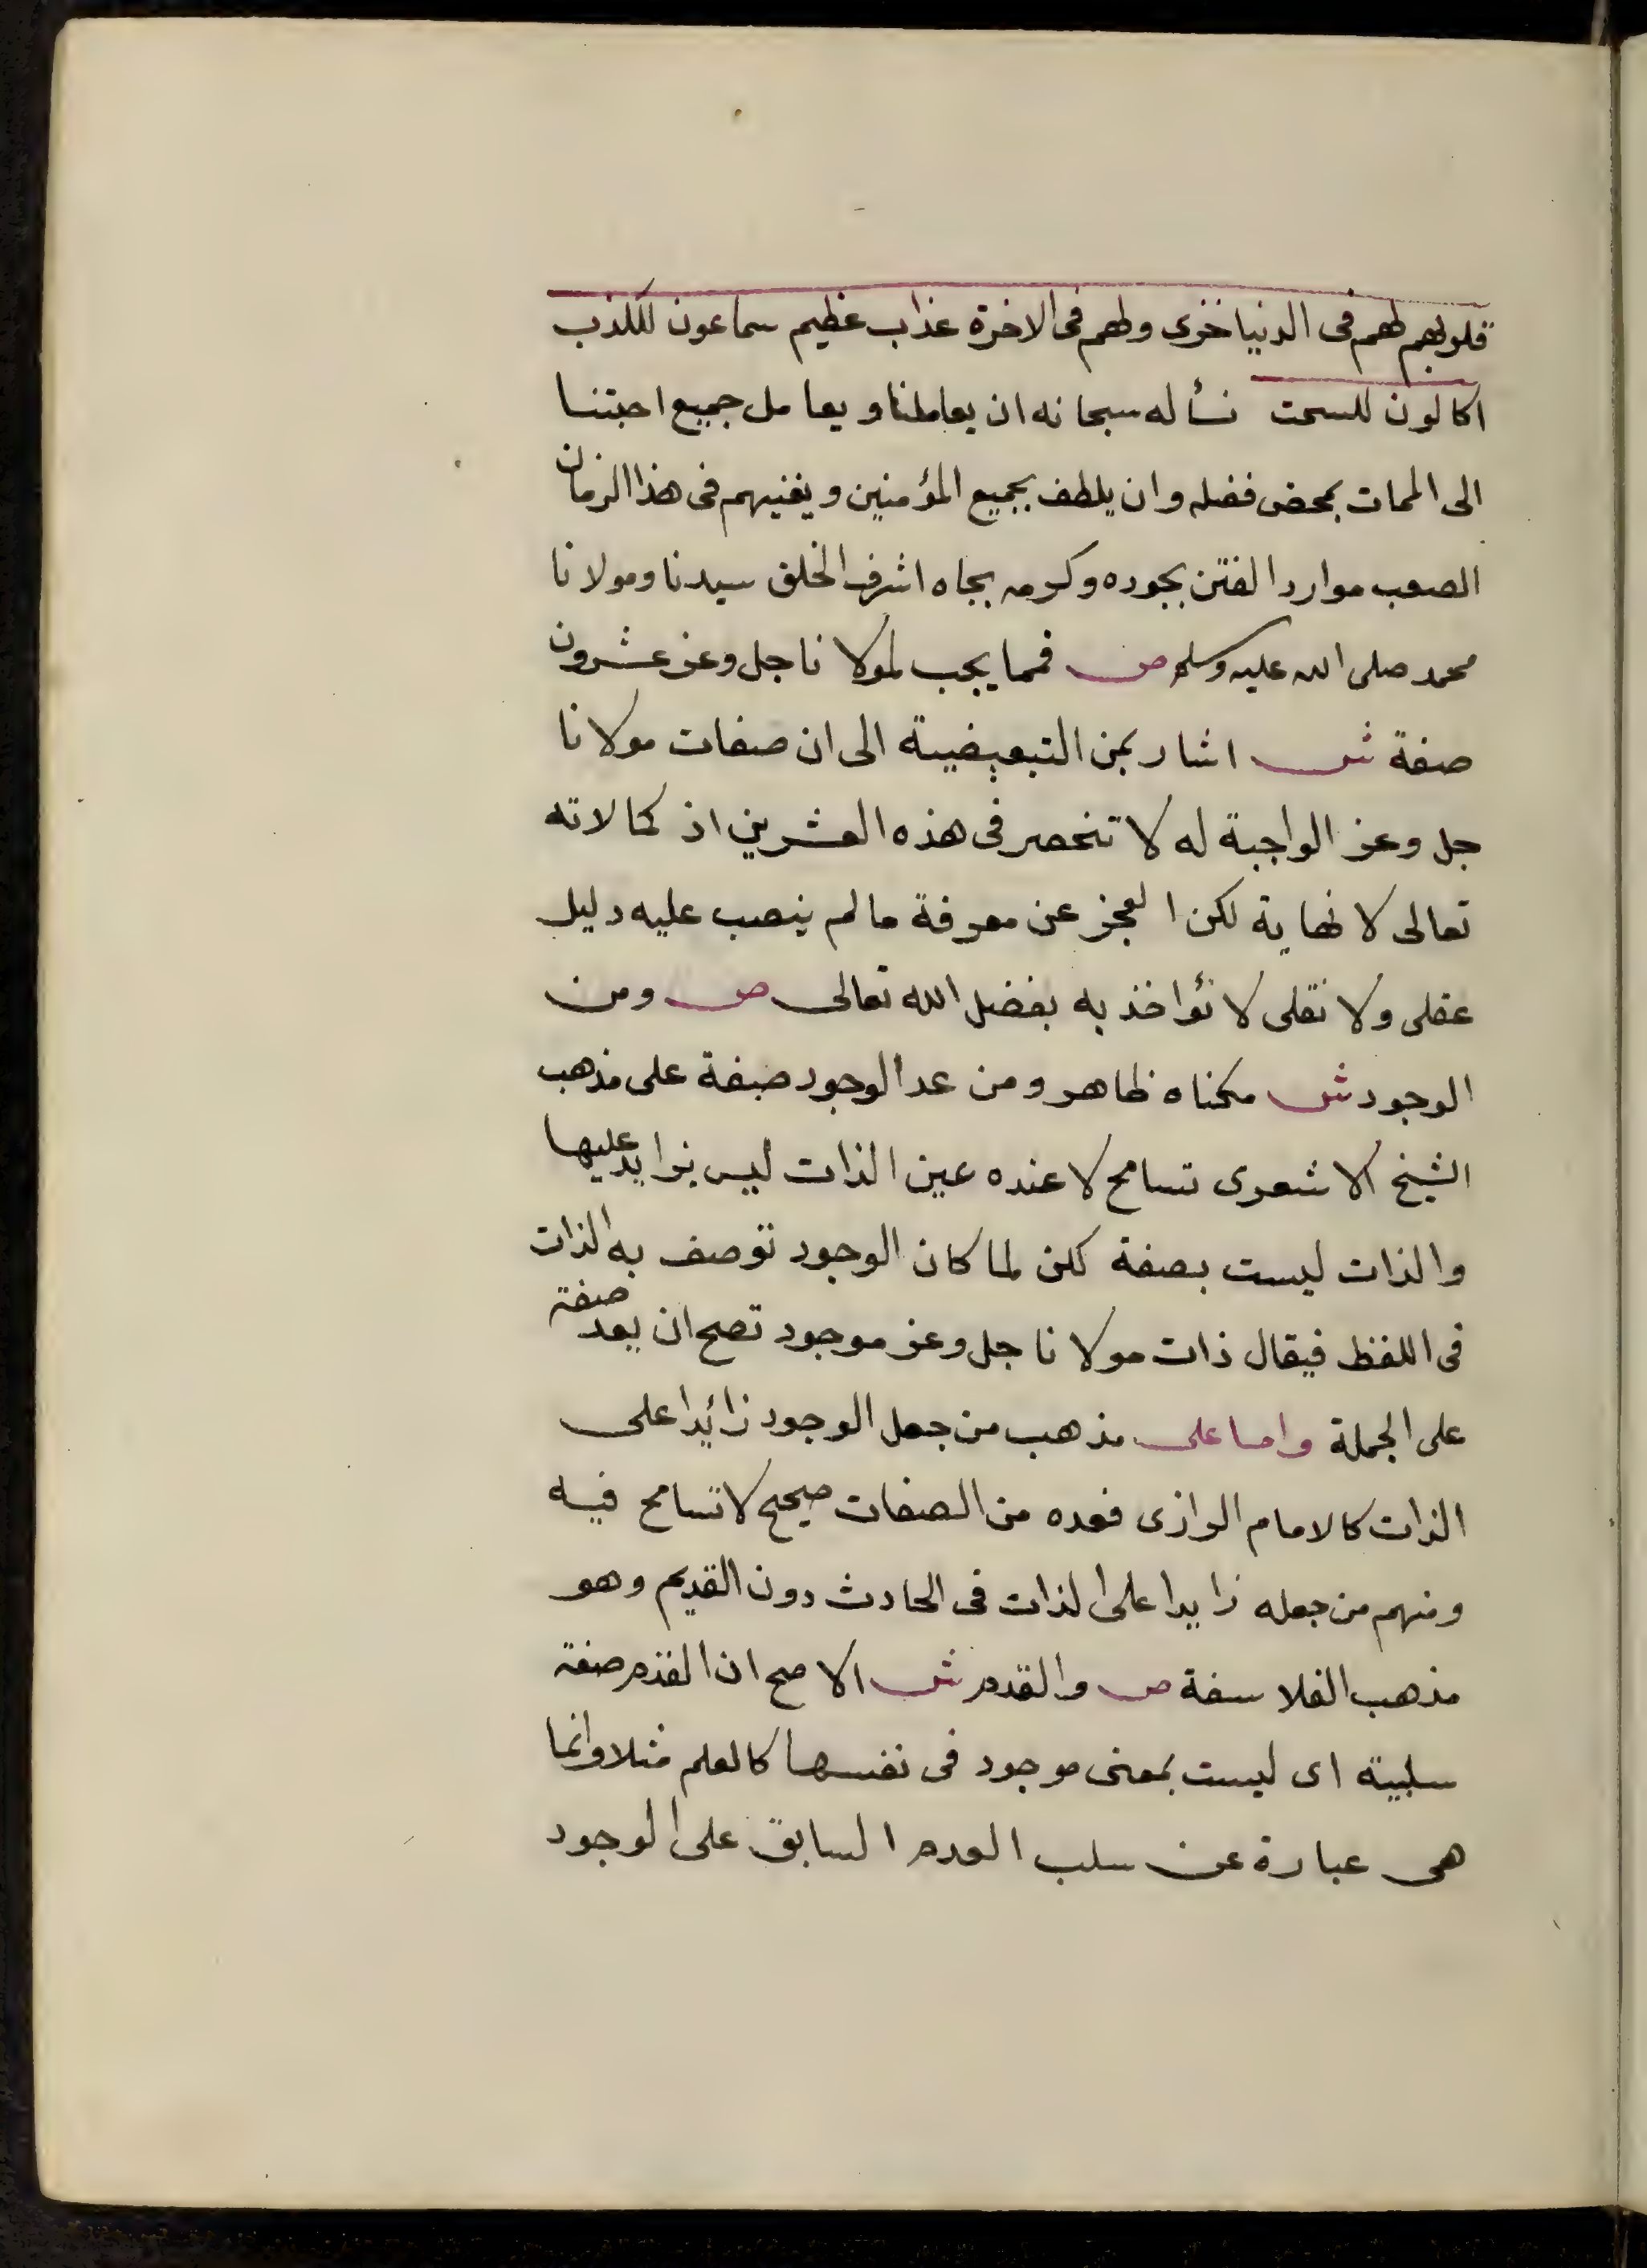 قلوبهم لهم فى الدنيا خزى ولهم فى الاخرة عذاب عظيم سماعون للكذب
اكالون للسحت نسأله سبحانه ان يعاملنا ويعامل جميع احبتنا
الى الممات بمحض فضله وان يلطف بجميع المؤمنين ويغنيهم فى هذا الزمان
الصعب موارد الفتن بجوده وكرمه بجاه اشرف الخلق سيدنا ومولانا
محمد صلى الله عليه وسلم ص فمما يجب لمولانا جل وعز عشرون
صفة ش اشار بمن التبعيضية الى ان صفات مولانا
جل وعز الواجبة له لا تنحصر فى هذه العشرين اذ كمالاته
تعالى لا نهاية لكن العجز عن معرفة ما لم ينصب عليه دليل
عقلى ولا نقلى لا نؤاخذ به بفضل الله تعالى ص ومن
الوجود ش ظاهر ومن عد الوجود صفة على مذهب
الشيخ الاشعرى تسامح لا عنده عين الذات ليس بزايد عليها
والذات ليست بصفة لكن لما كان الوجود توصف به الذات
فى اللفظ فيقال ذات مولانا جل وعز موجود تصح ان يعد صفة
على الجملة واما على مذهب من جعل الوجود زائدا على
الذات كالامام الرازى فعده من الصفات صحيح لا تسامح فيه
ومنهم من جعله زايدا على الذات فى الحادث دون القديم وهو
مذهب الفلاسفة ص والقدم ش الاصح ان القدم صفة
سلبية اى ليست بمعنى موجود فى نفسها كالعلم مثلا وانما
هى عبارة عن سلب العدم السابق على الوجود